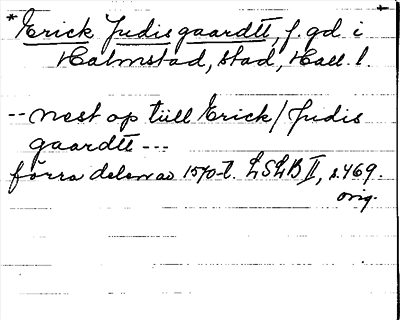 *Erick Judis gaardtt, f. gd. i
Halmstad, stad, Hall. l.
-- nest op tiill Erick / Judis
gaardtt ---
förra delen av 1570-t. LSLB II, s. 469.
orig.